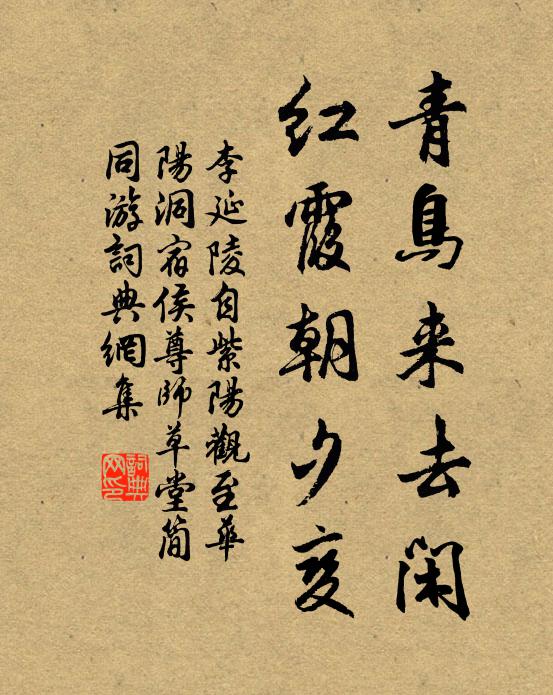 青鳥来去閑
紅霞朝夕变
李延陵自紫陽觀至華
陽洞宿侯尊師草堂簡
同游詞典網集
詞典
网印